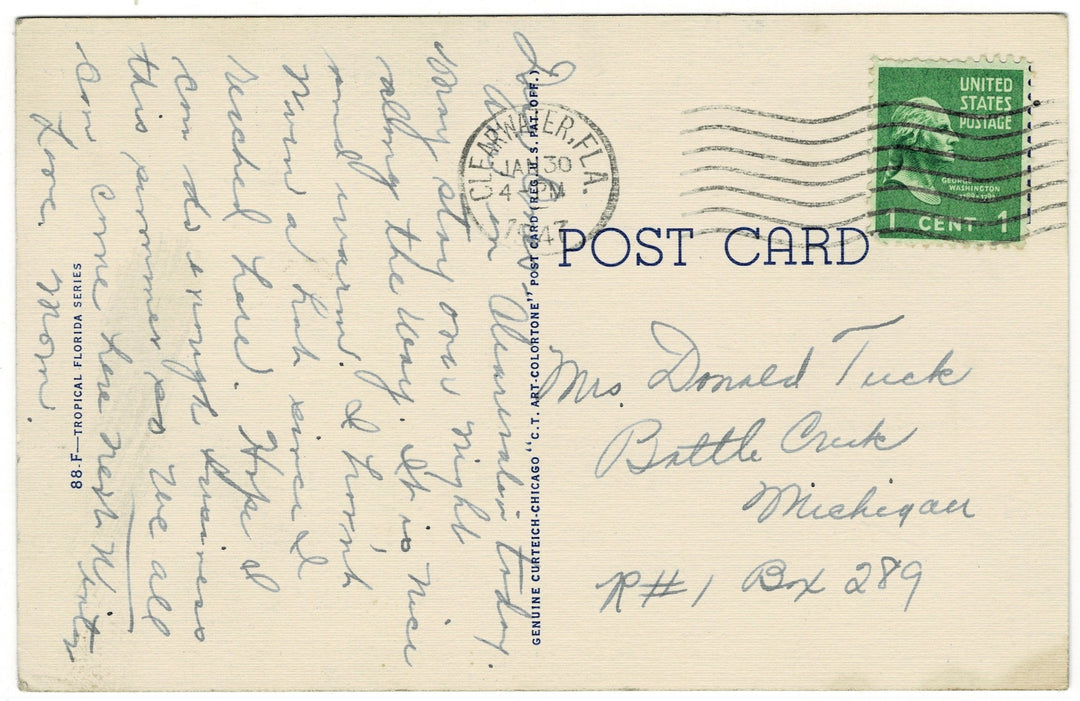 in Clearwater today.
May stay over night
along the way. It is nice
and warm. I havnt
Worn a hat since I
reached here. Hope I
can do enough business
this summer so we all
can come here next Winter
Love. Mom.
88-F—TROPICAL FLORIDA SERIES
GENUINE CURTEICH-CHICAGO "C.T. ART-COLORTONE" POST CARD (REG. U.S. PAT. OFF.)
CLEARWATER, FLA.
JAN 30
4 - PM
1947
UNITED
STATES
POSTAGE
GEORGE
WASHINGTON
1 CENT 1
POST CARD
Mrs. Donald Tuck
Battle Creek
Michigan
R#1 Box 289